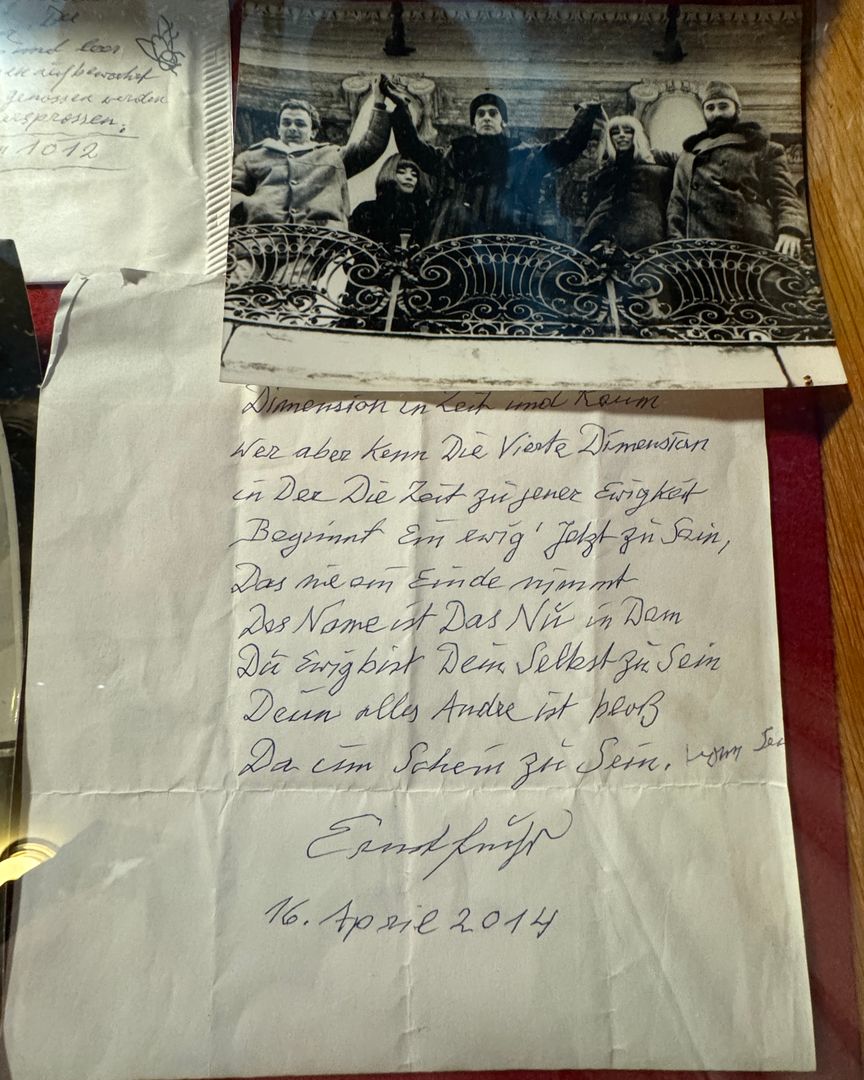 Die
und leer
aufbewahrt
genossen werden
1012
Dimension in Zeit und Raum
Wer aber kenn Die Vierte Dimension
in Der Die Zeit zu jener Ewigkeit
Beginnt Ein ewig' Jetzt zu Sein,
Das nie ein Einde nimmt
Des Name ist Das Nu in Dem
Du Ewig bist Dein Selbst zu Sein
Denn alles Andre ist bloß
Da um Schein zu Sein.
Ernst Fuchs
16. April 2014